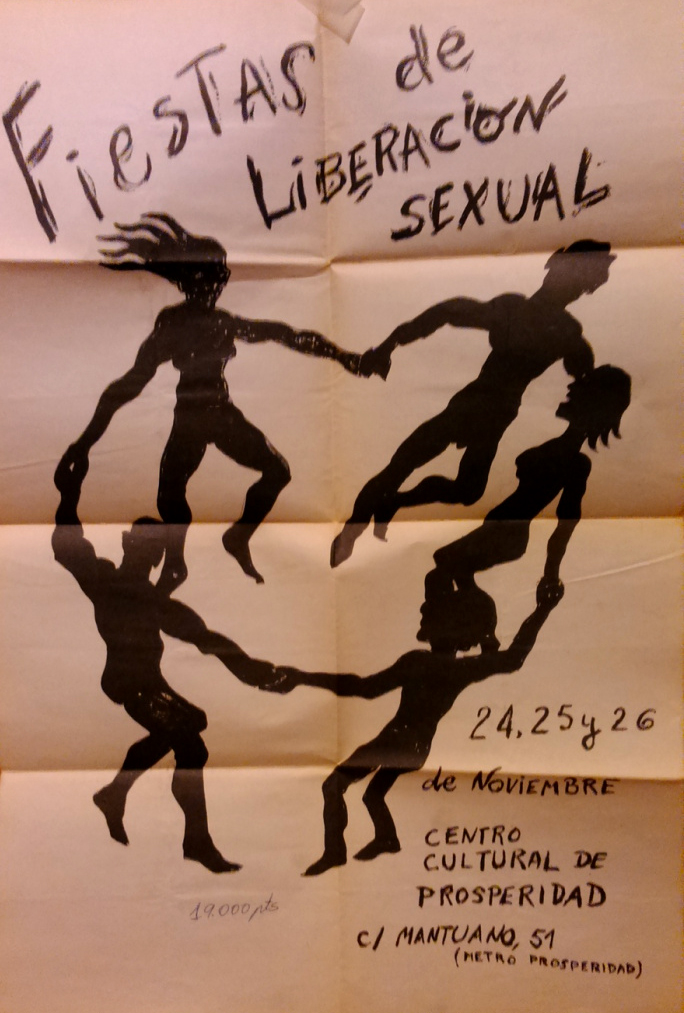 FiesTAS de
LiBERACiON
SEXUAL
24, 25 y 26
de NOViEMBRE
CENTRO
CULTURAL DE
PROSPERIDAD
C/ MANTUANO, 51
(METRO PROSPERIDAD)
19.000 pts